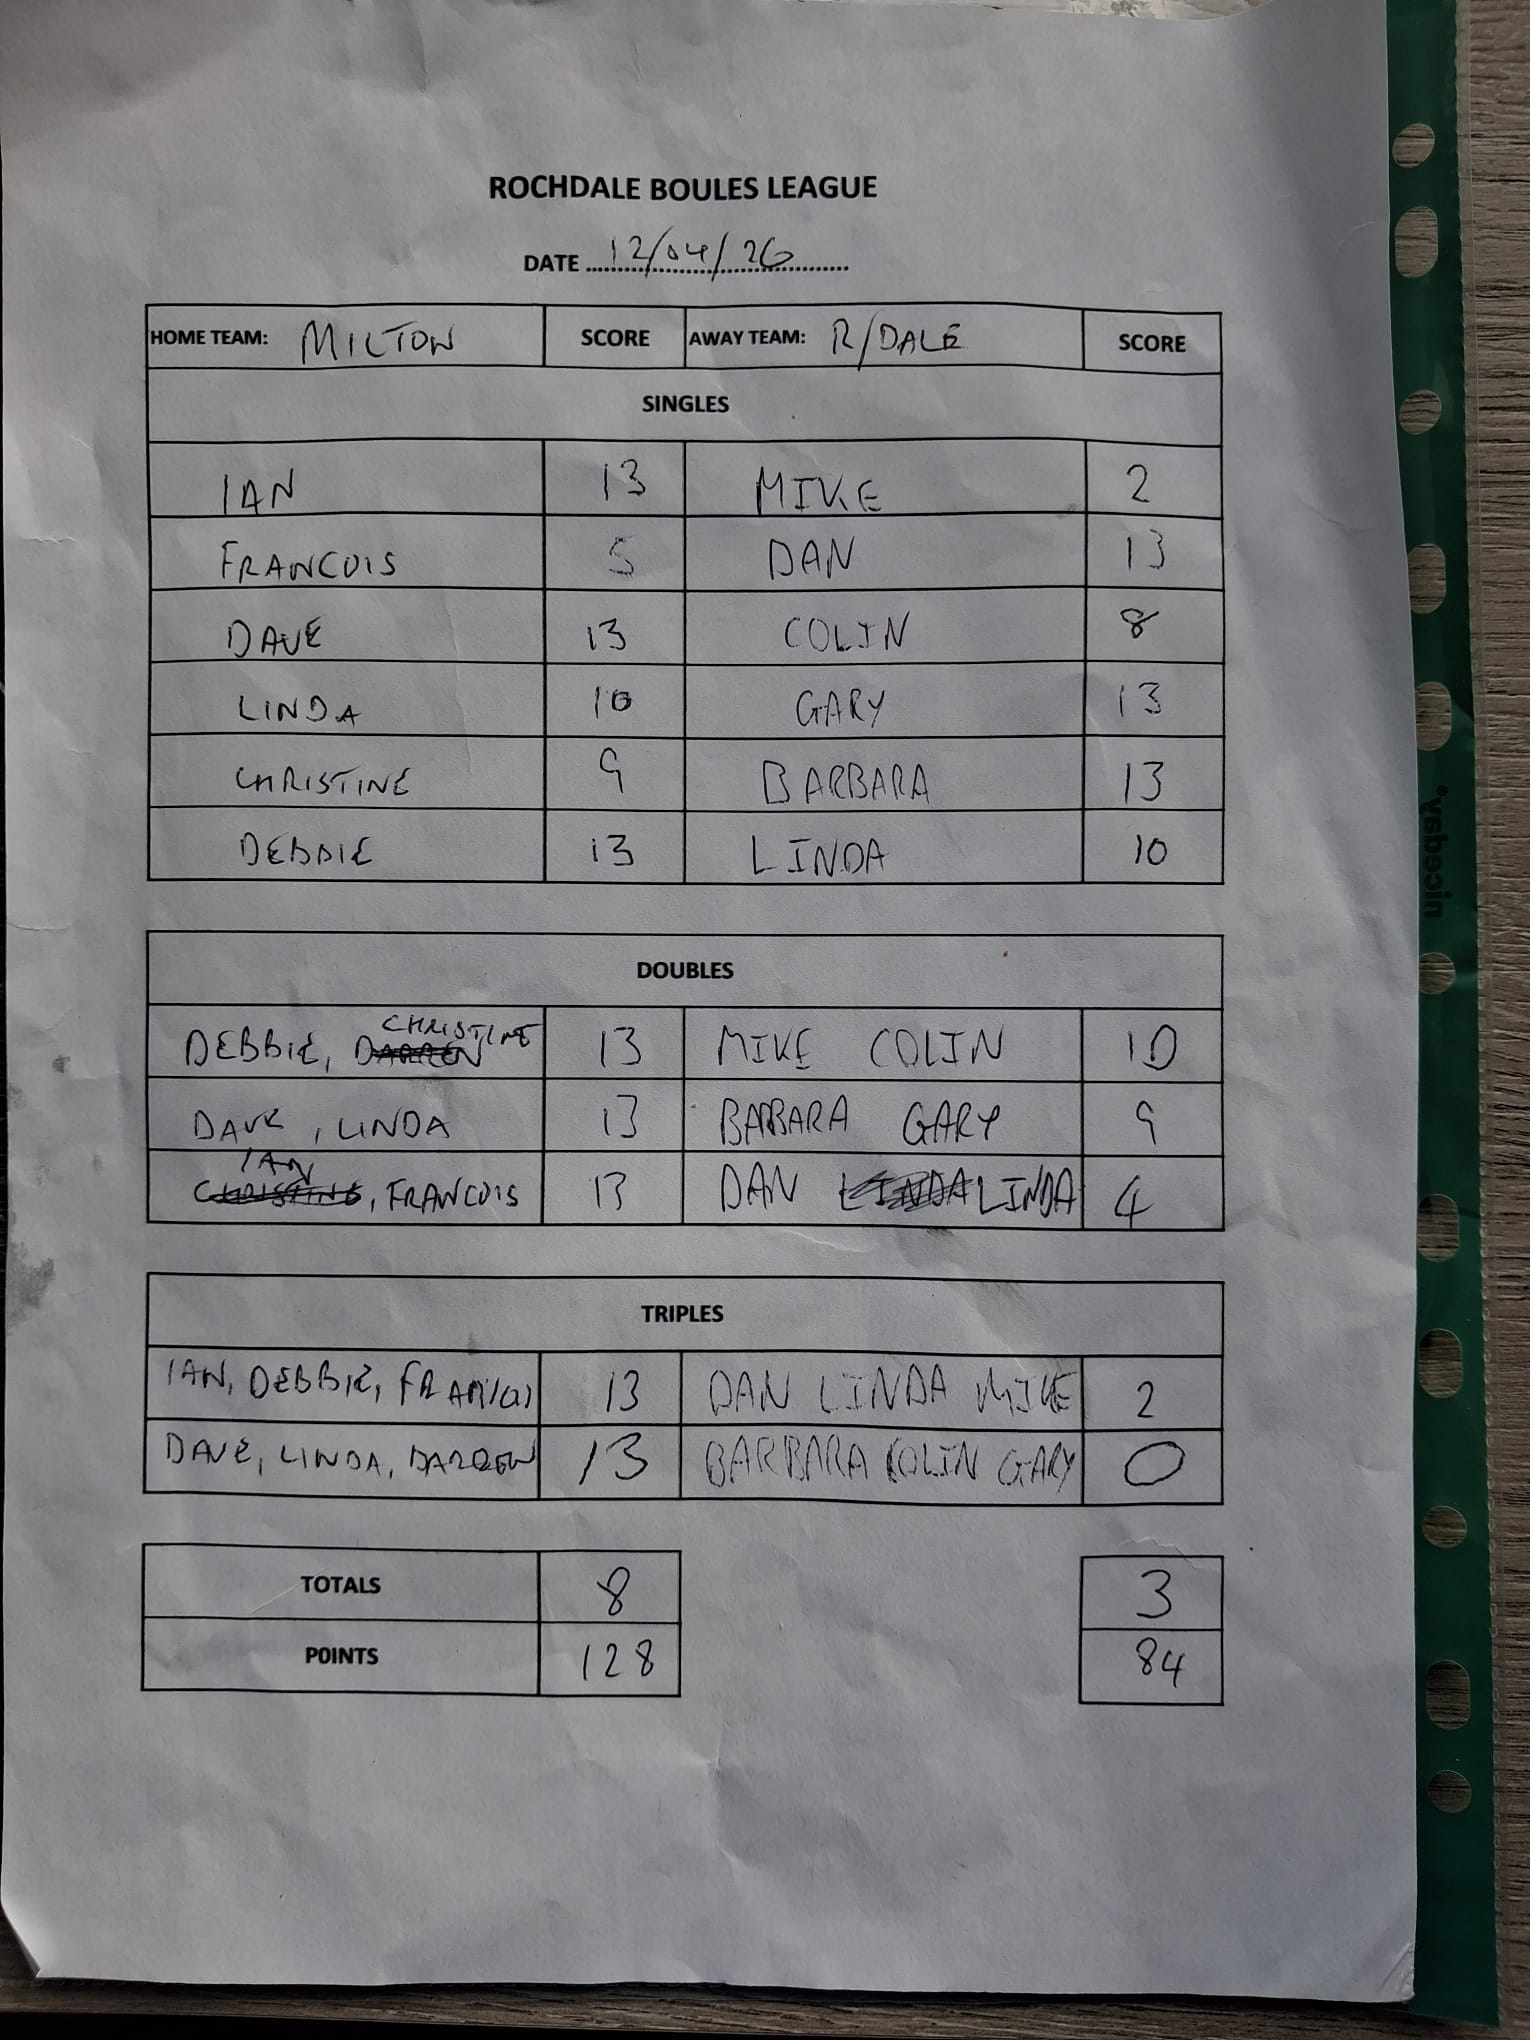 ROCHDALE BOULES LEAGUE
DATE 12/04/26
HOME TEAM: MILTON SCORE AWAY TEAM: R/DALE SCORE
SINGLES
IAN 13 MIKE 2
FRANCOIS 5 DAN 13
DAVE 13 COLIN 8
LINDA 10 GARY 13
CHRISTINE 9 BARBARA 13
DEBBIE 13 LINDA 10
DOUBLES
CHRISTINE
DEBBIE, DARREN 13 MIKE COLIN 10
DAVE, LINDA 13 BARBARA GARY 9
IAN
CHRISTINE, FRANCOIS 13 DAN LINDA LINDA 4
TRIPLES
IAN, DEBBIE, 13 DAN LINDA MIKE 2
DAVE, LINDA, DARREN 13 BARBARA COLIN GARY 0
TOTALS 8 3
POINTS 128 84
niceday